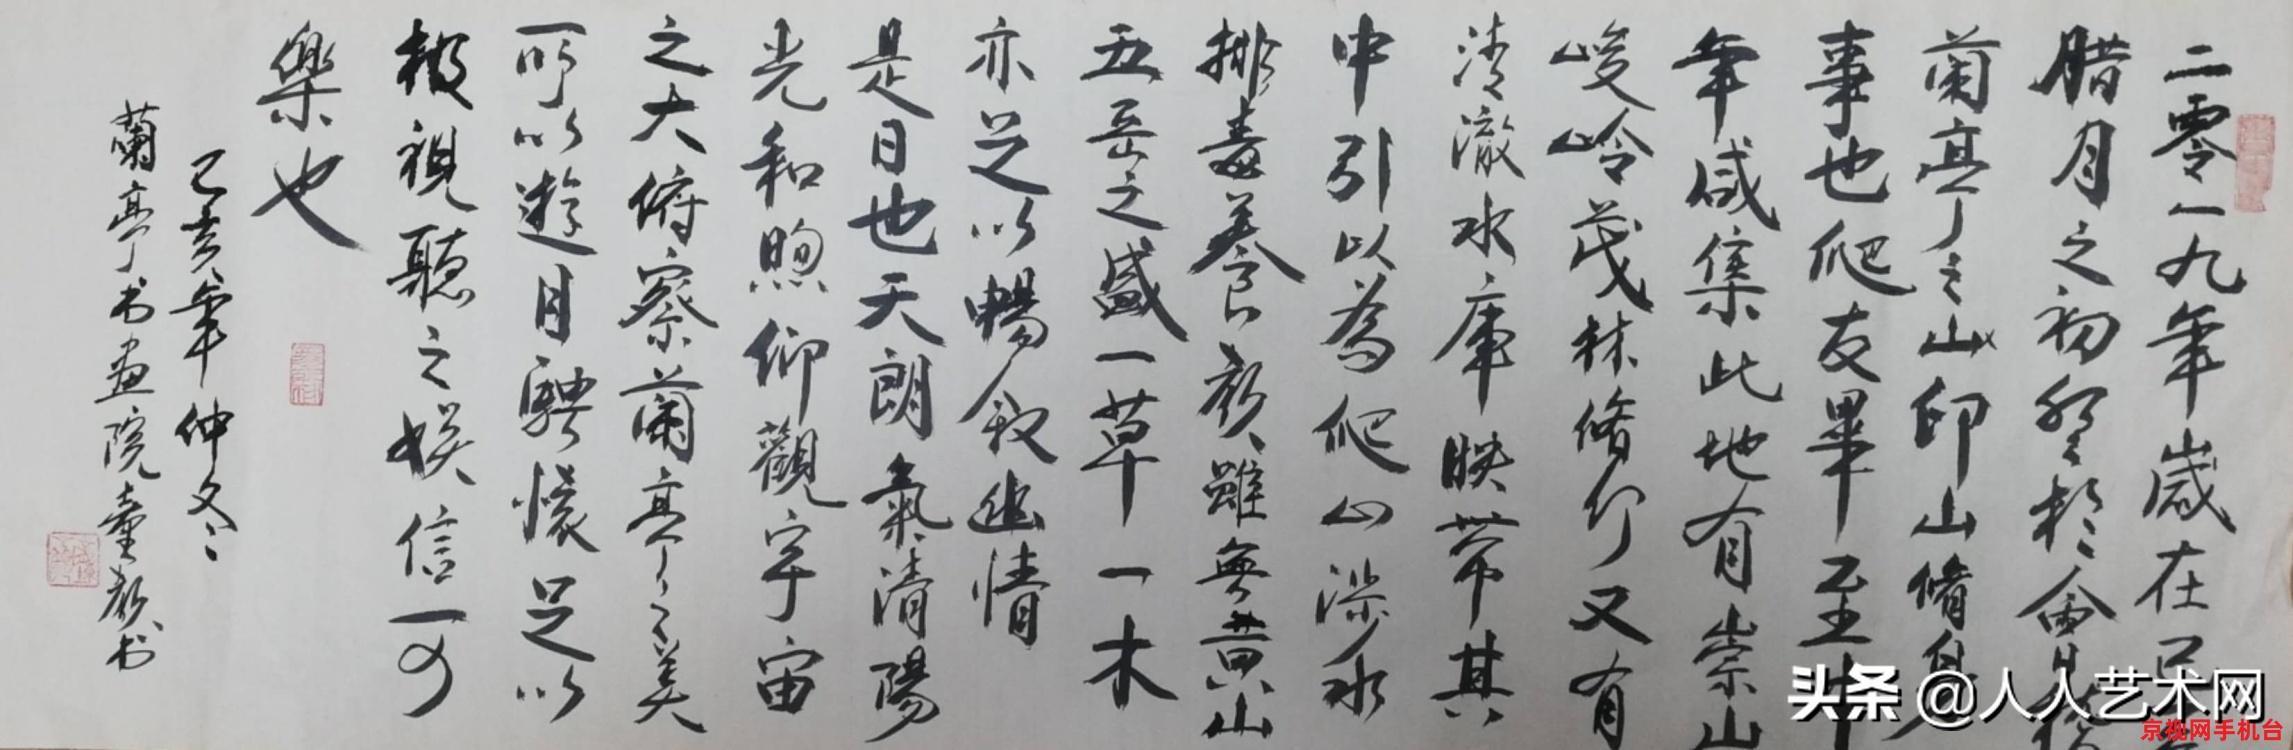 二零一九年歲在己
腊月之初登於會
蘭亭之山印山脩身
事也爬友畢至
年咸集此地有崇山
峻岭茂林脩竹又有
清澈水庫映帶其
中引以為爬山涉水
排毒養颜雖無黄山
五岳之盛一草一木
亦足以暢叙幽情
是日也天朗氣清陽
光和煦仰觀宇宙
之大俯察蘭亭之美
所以遊目騁懷足以
极視聽之娱信可
樂也
己亥年仲冬
蘭亭书画院童毅书
头条 @人人艺术网
京视网手机台